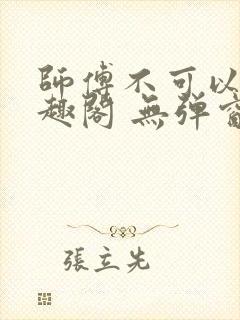 師傅不可以
趣閣 無彈窗
張立先